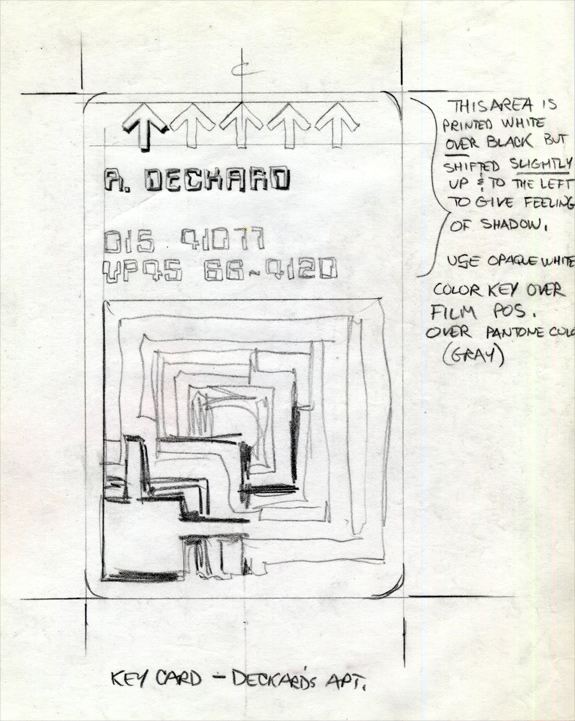 C
A. DECKARD
015 41077
VP45 66~4120
THIS AREA IS
PRINTED WHITE
OVER BLACK BUT
SHIFTED SLIGHTLY
UP & TO THE LEFT
TO GIVE FEELING
OF SHADOW.
USE OPAQUE WHITE
COLOR KEY OVER
FILM POS.
OVER PANTONE COLO
(GRAY)
KEY CARD – DECKARD'S APT.